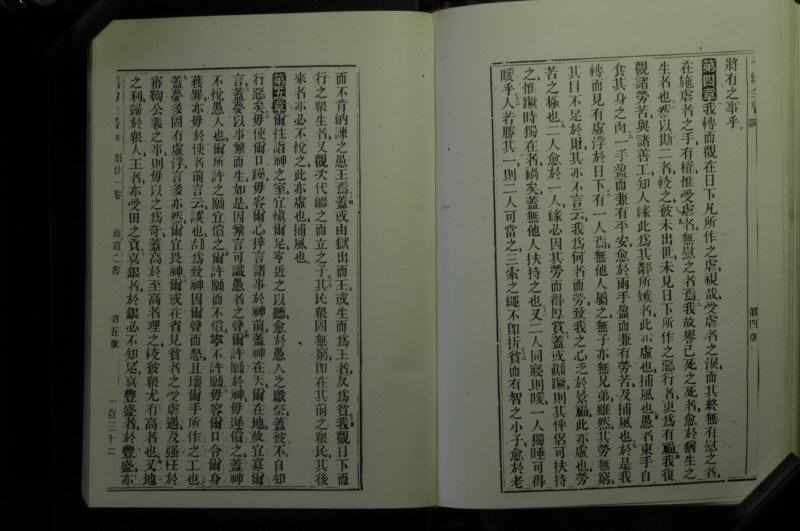 將有之事乎
第四章我轉而觀在日下凡所作之虐視哉受虐者之淚而其終無有慰之者
在施虐者之手有權惟受虐者無慰之者焉我故譽已死之死者愈於猶生之
生者也然以斯二者較之彼未出世未見日下所作之惡行者更為有福我復
觀諸勞苦與諸善工知人緣此為其鄰所嫉者此亦虛也捕風也愚者束手自
食其身之肉一手盈而兼有平安愈於兩手盈而兼有勞苦及捕風也於是我
轉而見有虛浮於日下有一人焉無他人屬之無子亦無兄弟雖然其勞無窮
其目不足於財其亦不言云我為何者而勞致我之心乏於景福此亦虛也勞
苦之極也二人愈於一人緣必因其勞而得厚賞蓋或顛蹶則其伴侶可扶持
之惟蹶時獨在者禍矣蓋無他人扶持之也又二人同寢則暖一人獨睡可得
暖乎人若勝其一則二人可當之三索之繩不即折貧而有智之小子愈於老
第四章
而不肯納諫之愚王焉蓋或由獄出而王或生而為王者反為貧我觀日下而
行之眾生者又觀次代繼之而立之子其民眾固無窮即在其前之眾民其後
來者亦必不悅之此亦虛也捕風也
第五章爾往詣神之室宜慎爾足寧近之以聽愈於愚人之獻祭蓋彼不自知
行惡矣毋使爾口躁毋容爾心擇言諸事於神前蓋神在天爾在地故宜寡爾
言蓋夢以事繁而生如是因繁言可識愚者之聲爾許願於神毋遲償之蓋神
不悅愚人也爾所許之願宜償之爾許願而不償寧不許願毋容爾口令爾身
獲罪亦毋於使者前言云誤也胡為致神因爾聲而怒且壞爾手所作之工也
蓋夢多固有虛浮言多亦然爾宜畏神爾或在省見貧者之受虐遇及强枉於
審鞫公義之事則毋以之為奇蓋高於至高者理之較彼眾尤有高者也又地
之利歸於眾人王者亦受田之貢嘉銀者於銀必不知足喜豐盛者於豐盛亦
卷
傳道之書
第五章
一百三十二